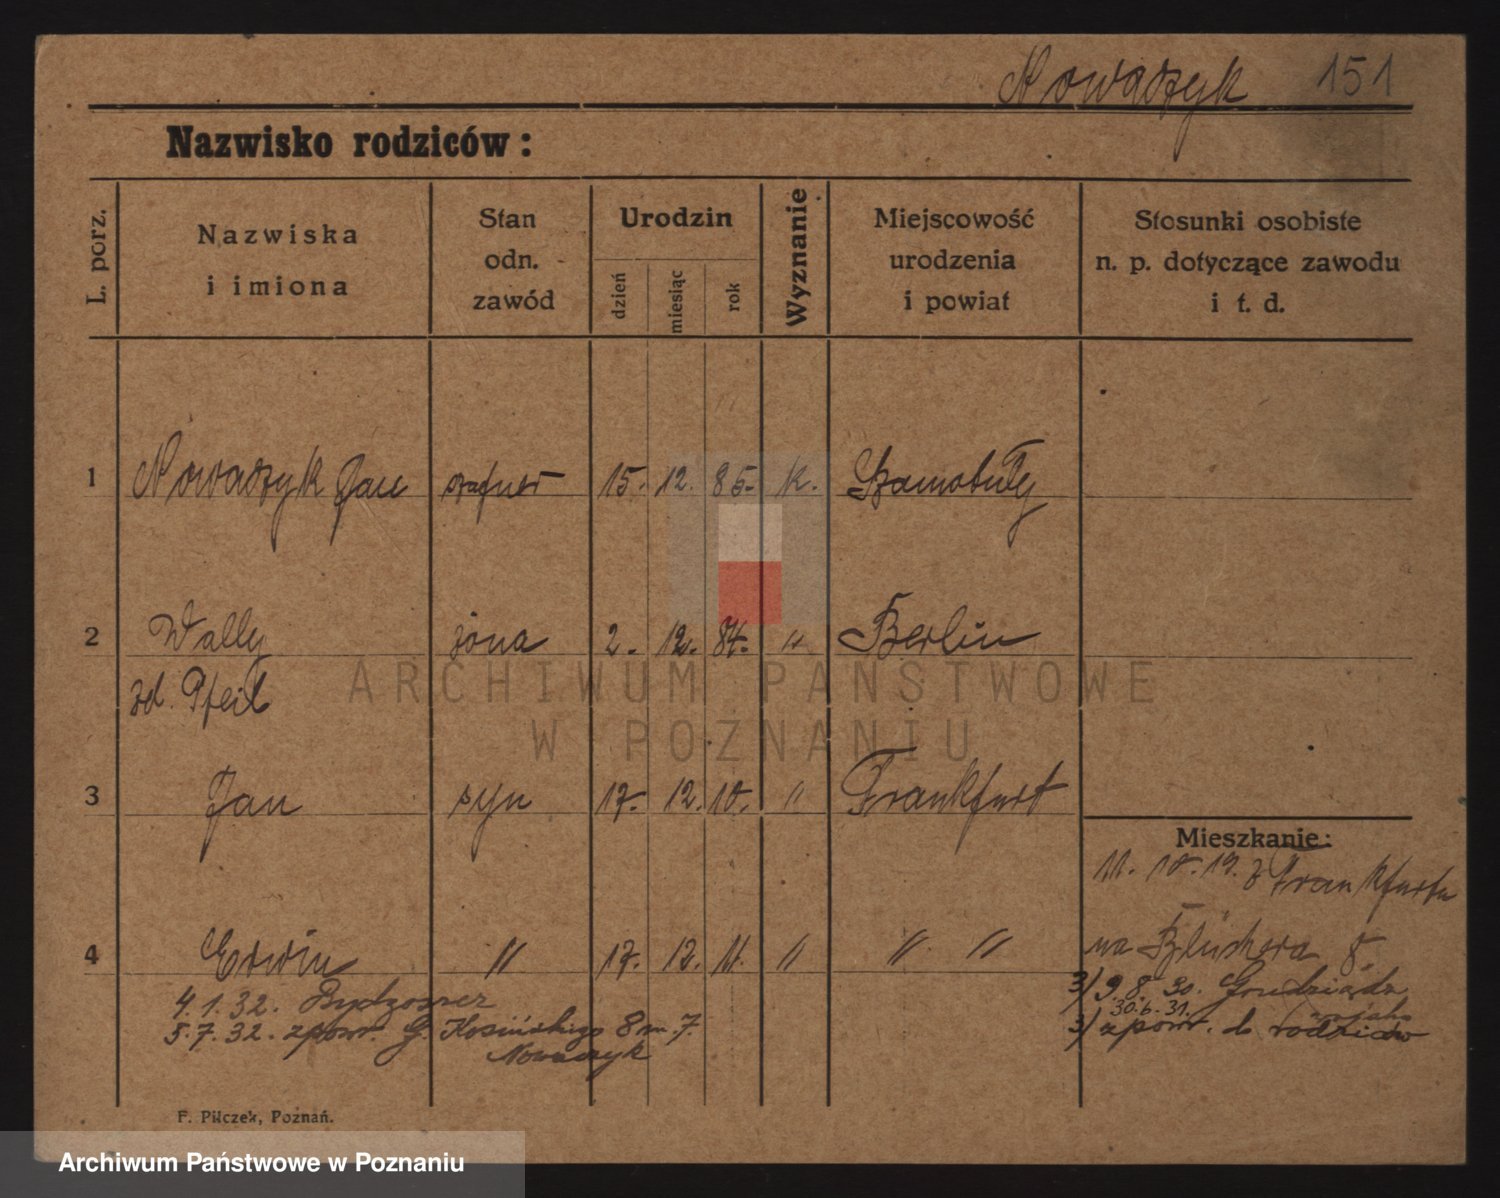 Nowaczyk 151
Nazwisko rodziców:
L. porz.
Nazwiska
i imiona
Stan
odn.
zawód
Urodzin
dzień
miesiąc
rok
Wyznanie
Miejscowość
urodzenia
i powiat
Stosunki osobiste
n. p. dotyczące zawodu
i t. d.
1 Nowaczyk Jan 15. 12. 85. k. Szamotuły
2 Wally żona 2. 12. 84. " Berlin
zd. Pfeil
3 Jan syn 17. 12. 10. " Frankfurt
Mieszkanie:
11. 10. 19. z Frankfurtu
4 Erwin " 17. 12. 11. " " "
na Blüchera 8.
3) 9.8.30. Grudziądz
30.6.31.
3) zpowr. do rodziców
4.1.32. Bydgoszcz
5.7.32. zpowr. G. Kosińskiego 8 m. 7
Nowaczyk
F. Pilczek, Poznań.
ARCHIWUM PAŃSTWOWE
W POZNANIU
Archiwum Państwowe w Poznaniu